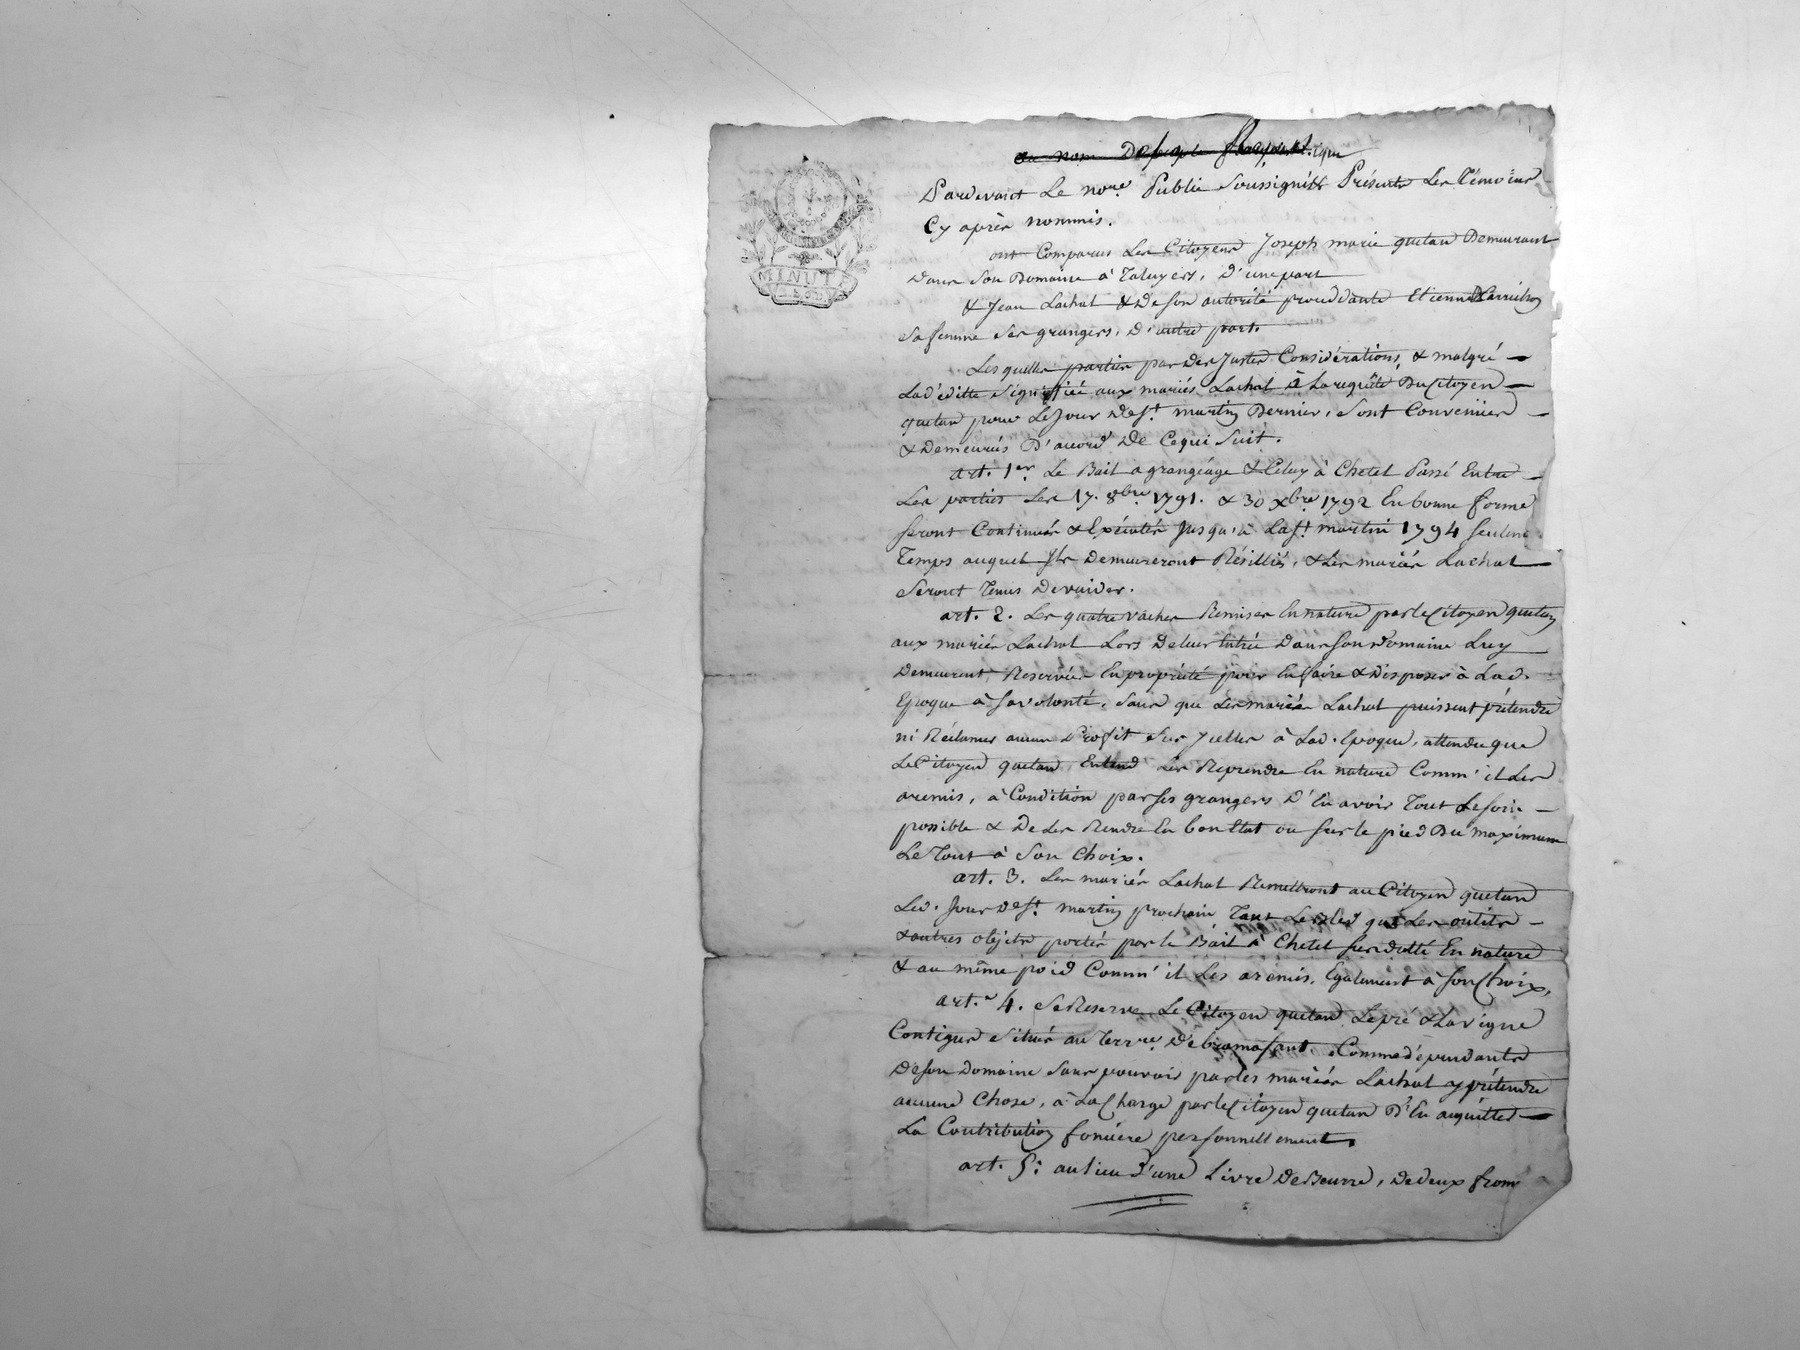 au nom
MINUTE
Pardevant Le nore Public Soussigné & Présents Les Témoins
Cy après nommés.
ont Comparus Les Citoyens Joseph marie quetan Demeurant
Dans Son Domaine à Taluyers, D'une part
& Jean Lachat & De son autorité procédante Etiennette
Sa femme Ses grangers, D'autre part.
Lesquelles parties par Des Justes Considérations, & malgré
Lad'éditte Signiffiée aux mariés Lachat à La requête Du Citoyen
quetan pour Le Jour De St. martin Dernier, Sont Convenües
& Demeurés D'acord De Ce qui Suit.
art. 1er. Le Bail a grangéage & Celuy à Chetel Passé Entre
Les parties Les 17. 8bre 1791. & 30 Xbre 1792 En bonne forme
seront Continués & Exécutés Jusqu'à La St. martin 1794 seulemt
Temps auquel Ils Demeureront Résilliés, & Les mariés Lachat
Seront Tenus De vuider.
art. 2. Les quatre vaches Remises En nature par le Citoyen quetan
aux mariés Lachat Lors De leur Entrée Dans son Domaine Luy
Demeurent Reservées En propriété pour En faire & Disposer à Lad.
Epoque à Sa volonté, Sans que Les mariés Lachat puissent prétendre
ni Réclamer aucun Profit Sur Jcelles à Lad. Epoque, attendu que
Le Citoyen quetan Entend Les Reprendre En nature Comm' il Les
aremis, à Condition par ses grangers D'En avoir Tout Le soin
possible & De Les Rendre En bon Etat ou sur le pied Du maximum
Le Tout à Son Choix.
art. 3. Les mariés Lachat Remettront au Citoyen quetan
Led. Jour De St. martin prochain Tant Les bled que Les outils
& autres objets portés par le Bail à Chetel susdatté En nature
& au même poid Comm' il Les aremis, Egalement à son Choix,
art. 4. Se Reserve Le Citoyen quetan Le pré & La vigne
Contigus Situés au Terre. De bramafant, Comme dépendants
De son Domaine Sans pouvoir par les mariés Lachat y prétendre
aucune Chose, à La Charge par le Citoyen quetan D'En aquitter
La Contribution fonciere personnellement.
art. 5: au lieu D'une Livre De Beurre, De deux from